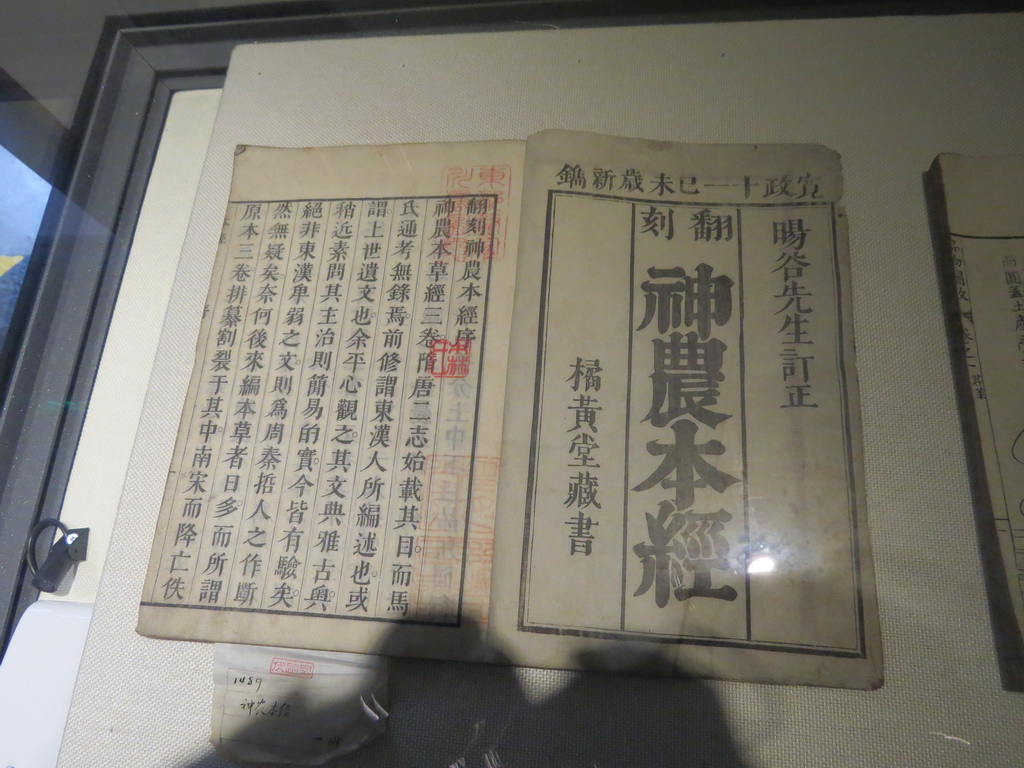 寛政十一己未歳新鐫
暘谷先生訂正
翻刻
神農本經
橘黃堂藏書
翻刻神農本經序
神農本草經三卷隋唐二志始載其目而馬
氏通考無錄焉前修謂東漢人所編述也或
謂上世遺文也余平心觀之其文典雅古奧
稍近素問其主治則簡易的實今皆有驗矣
絕非東漢卑弱之文則爲周秦哲人之作斷
然無疑矣奈何後來編本草者日多而所謂
原本三卷排纂割裂于其中南宋而降亡佚
1489
神农本经